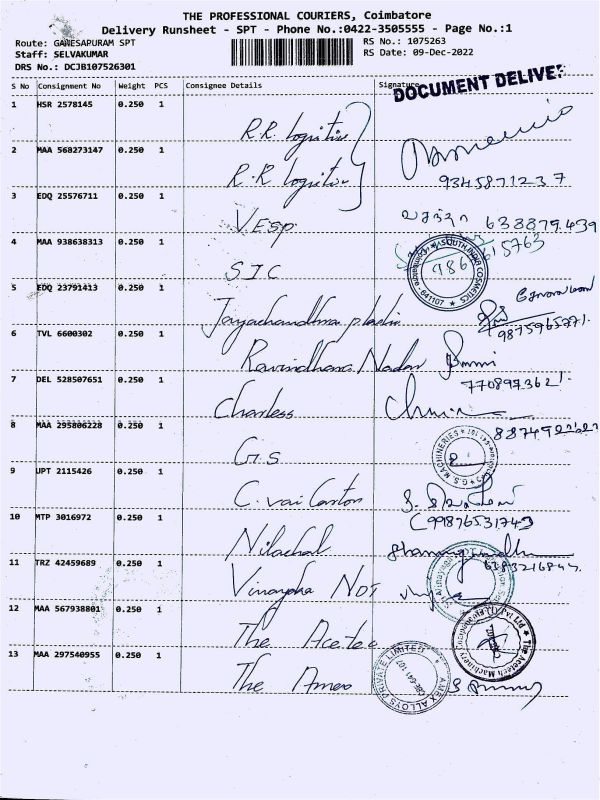 THE PROFESSIONAL COURIERS, Coimbatore
Delivery Runsheet - SPT - Phone No.:0422-3505555 - Page No.:1
Route: GANESAPURAM SPT
RS No.: 1075263
Staff: SELVAKUMAR
RS Date: 09-Dec-2022
DRS No.: DCJB107526301
S No Consignment No Weight PCS Consignee Details Signature
DOCUMENT DELIVE
1 HSR 2578145 0.250 1
R.R. Logitic
2 MAA 568273147 0.250 1
R.R Logitic
9345871237
3 EDQ 25576711 0.250 1
VESP
வசந்தா 638879439
4 MAA 938638313 0.250 1
SIC
SOUTH INDIA COSMETICS
641107
5 EDQ 23791413 0.250 1
Jayachandhra plastic
9875965271
6 TVL 6600302 0.250 1
Ravindhana Nadar
7 DEL 528507651 0.250 1
7708973621
Charless
8 MAA 295806228 0.250 1
G.S
G.S. MACHINERIES
9 UPT 2115426 0.250 1
C. vai Carton
10 MTP 3016972 0.250 1
99876531743
Nilachal
11 TRZ 42459689 0.250 1
Vinayaka NDT
12 MAA 567938801 0.250 1
The Acetec
The Acetech Machinery Components (I) Pvt Ltd
13 MAA 297540955 0.250 1
The Amex
AMEX ALLOYS PRIVATE LIMITED
CBE-641 107